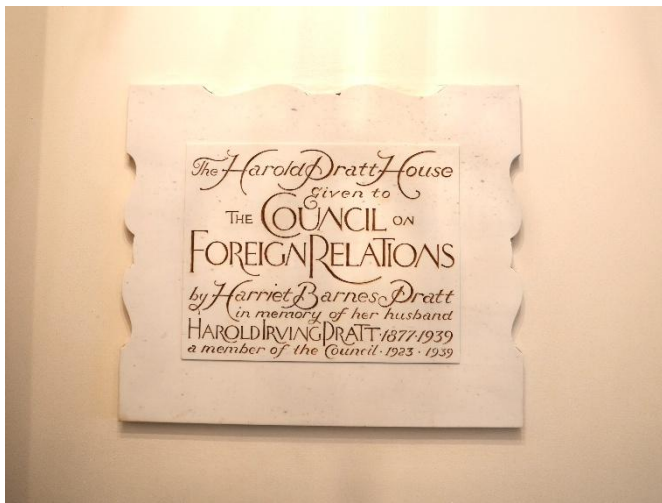 The Harold Pratt House
Given to
THE COUNCIL ON
FOREIGN RELATIONS
by Harriet Barnes Pratt
in memory of her husband
HAROLD IRVING PRATT · 1877 · 1939
a member of the Council · 1923 · 1939